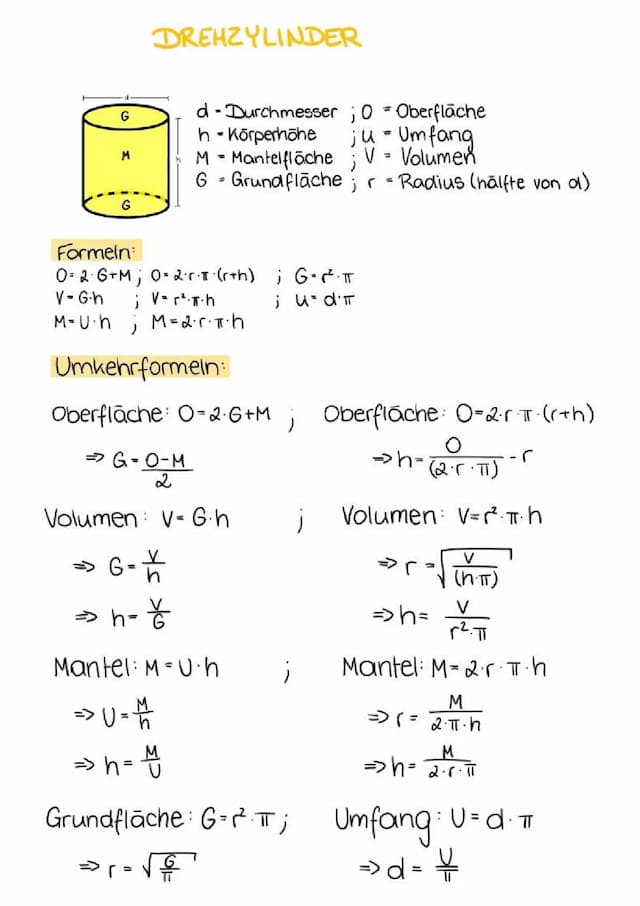 DREHZYLINDER
d
G
M
h
G
d - Durchmesser ; O = Oberfläche
h - Körperhöhe ; u = Umfang
M = Mantelfläche ; V = Volumen
G = Grundfläche ; r = Radius (hälfte von d)
Formeln:
O=2·G+M ; O=2·r·π·(r+h) ; G=r²·π
V=G·h ; V=r²·π·h ; u=d·π
M=U·h ; M=2·r·π·h
Umkehrformeln:
Oberfläche: O=2·G+M ; Oberfläche: O=2·r·π·(r+h)
⇒ G=(O-M)/2 ⇒ h=O/(2·r·π) - r
Volumen: V=G·h ; Volumen: V=r²·π·h
⇒ G=V/h ⇒ r=√(V/(h·π))
⇒ h=V/G ⇒ h=V/(r²·π)
Mantel: M=U·h ; Mantel: M=2·r·π·h
⇒ U=M/h ⇒ r=M/(2·π·h)
⇒ h=M/U ⇒ h=M/(2·r·π)
Grundfläche: G=r²·π ; Umfang: U=d·π
⇒ r=√(G/π) ⇒ d=U/π